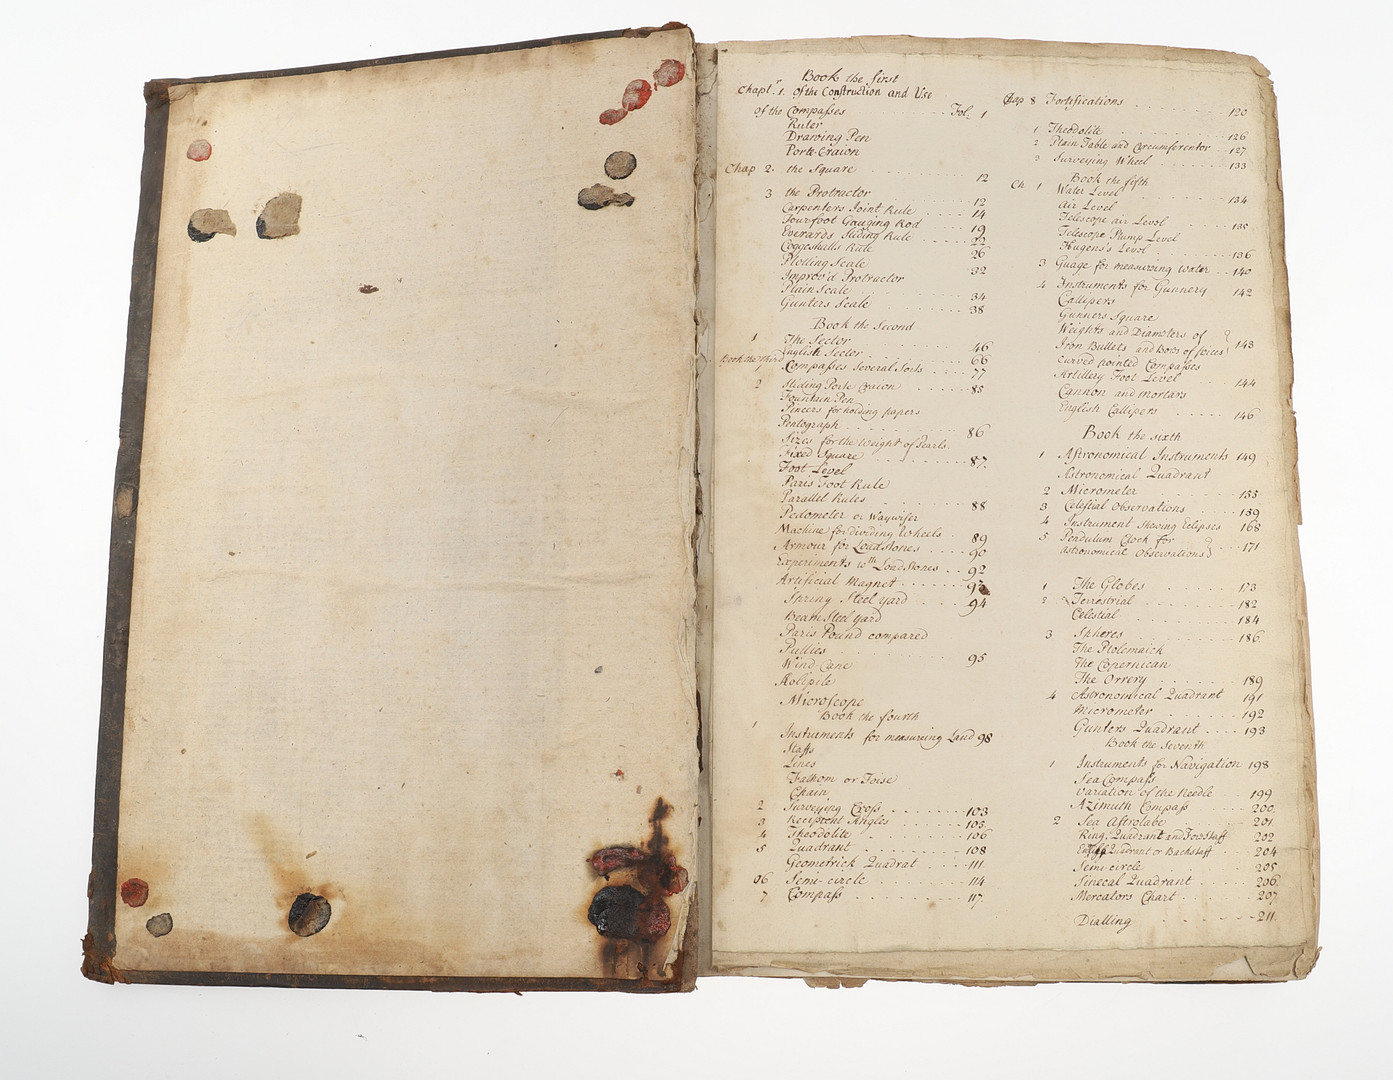 Book the first
Chapt.r 1. of the Construction and Use
of the Compasses Fol. 1
Ruler
Drawing Pen
Porte-Craion
Chap 2. the Square 12
3 the Protractor 12
Carpenters Joint Rule 14
Four foot Gauging Rod 19
Everards Sliding Rule 22
Coggeshalls Rule 26
Plotting Scale
Improv'd Protractor 32
Plain Scale 34
Gunters Scale 38
Book the Second
1 The Sector 46
English Sector 66
Book the third
1 Compasses Several Sorts 77
2 Sliding Porte Craion 85
Fountain Pen
Pincers for holding papers
Pentograph 86
Sizes for the Weight of Pearls
Fixed Square 87.
Foot Level
Paris Foot Rule
Parallel Rules 88
Pedometer or Waywiser
Machine for dividing Wheels 89
Armour for Loadstones 90
Experiments wth Loadstones 92
Artificial Magnet 93
Spring Steel yard 94
Beam Steel yard
Paris Pound compared
Pullies 95
Wind-Cane
Aolipile
Microscope
Book the fourth
1 Instruments for measureing Land 98
Staffs
Lines
Fathom or Toise
Chain
2 Surveying Cross 103
3 Recipient Angles 105
4 Theodolite 106
5 Quadrant 108
Geometrick Quadrat 111
06 Semi-circle 114
7 Compass 117
Chap 8 Fortifications 120
1 Theodolite 126
2 Plain Table and Circumferentor 127
3 Surveying Wheel 133
Book the fifth
Ch 1 Water Level 134
Air Level
Telescope air Level 135
Telescope Plump Level
Hugens's Level 136
3 Guage for measureing water 140
4 Instruments for Gunnery 142
Callipers
Gunners Square
Weights and Diameters of
Iron Bullets and Bores of Peices 143
Curved pointed Compasses
Artillery Foot Level 144
Cannon and Mortars
English Callipers 146
Book the sixth
1 Astronomical Instruments 149
Astronomical Quadrant
2 Micrometer 155
3 Celestial Observations 159
4 Instrument shewing Eclipses 168
5 Pendulum Clock for
Astronomical Observations 171
1 The Globes 173
2 Terrestrial 182
Celestial 184
3 Spheres 186
The Ptolemaick
The Copernican
The Orrery 189
4 Astronomical Quadrant 191
Micrometer 192
Gunters Quadrant 193
Book the Seventh
1 Instruments for Navigation 198
Sea Compass
Variation of the Needle 199
Azimuth Compass 200
2 Sea Astrolabe 201
Ring, Quadrant and Fore Staff 202
Quadrant or Backstaff 204
Semi circle 205
Sinecal Quadrant 206
Mercators Chart 207
Dialling 211